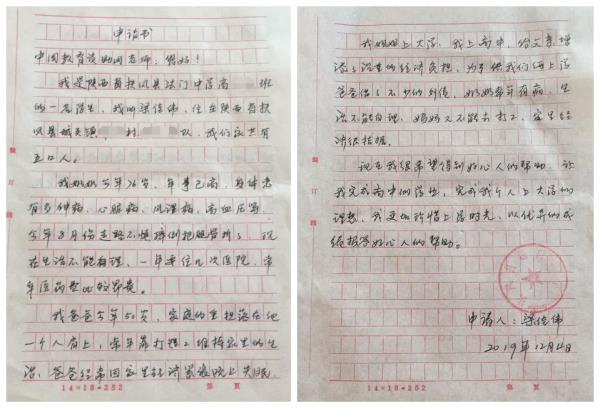 申请书
中国教育资助网老师：您好！
我是陕西省扶风县法门中学高 班
的一名学生，我叫梁佳伟，住在陕西省扶
风县城关镇 村 队，我们家共有
五口人。
我奶奶今年76岁，年事已高，身体患
有多种病，心脏病，风湿病，高血压等，
今年8月份走路不慎摔倒把腿骨折，现
在生活不能自理，一年要住几次医院，常
年医药费的较昂贵。
我爸爸今年50岁，家庭的重担落在他
一个人肩上，常年靠打理工维持家里的生
活，爸爸经常因家里经济紧张晚上失眠，
14×18=252
第 页
我姐姐上大学，我上高中，给父亲增
添了沉重的经济负担，为了供我们俩上学
爸爸借了不少的外债，奶奶常年有病，生
活不能自理，妈妈又不能去打工，家里经
济很拮据。
现在我很希望得到好心人的帮助，让
我完成高中的学业，完成我个人上大学的
理想，我更加珍惜上学时光，以优异的成
绩报答好心人的帮助。
申请人：梁佳伟
2019年12月4日
14×18=252
第 页